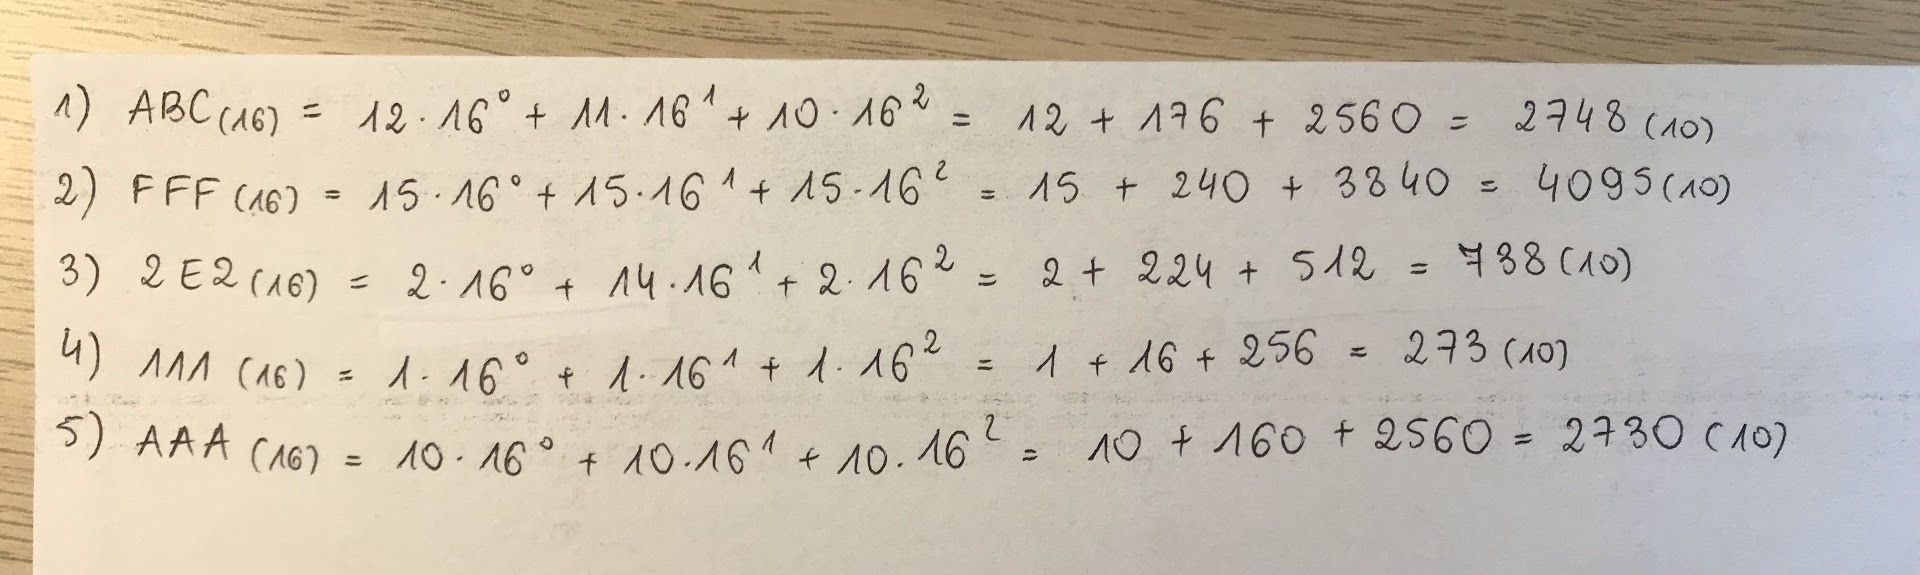 1) ABC(16) = 12·16⁰ + 11·16¹ + 10·16² = 12 + 176 + 2560 = 2748(10)
2) FFF(16) = 15·16⁰ + 15·16¹ + 15·16² = 15 + 240 + 3840 = 4095(10)
3) 2E2(16) = 2·16⁰ + 14·16¹ + 2·16² = 2 + 224 + 512 = 738(10)
4) 111(16) = 1·16⁰ + 1·16¹ + 1·16² = 1 + 16 + 256 = 273(10)
5) AAA(16) = 10·16⁰ + 10·16¹ + 10·16² = 10 + 160 + 2560 = 2730(10)